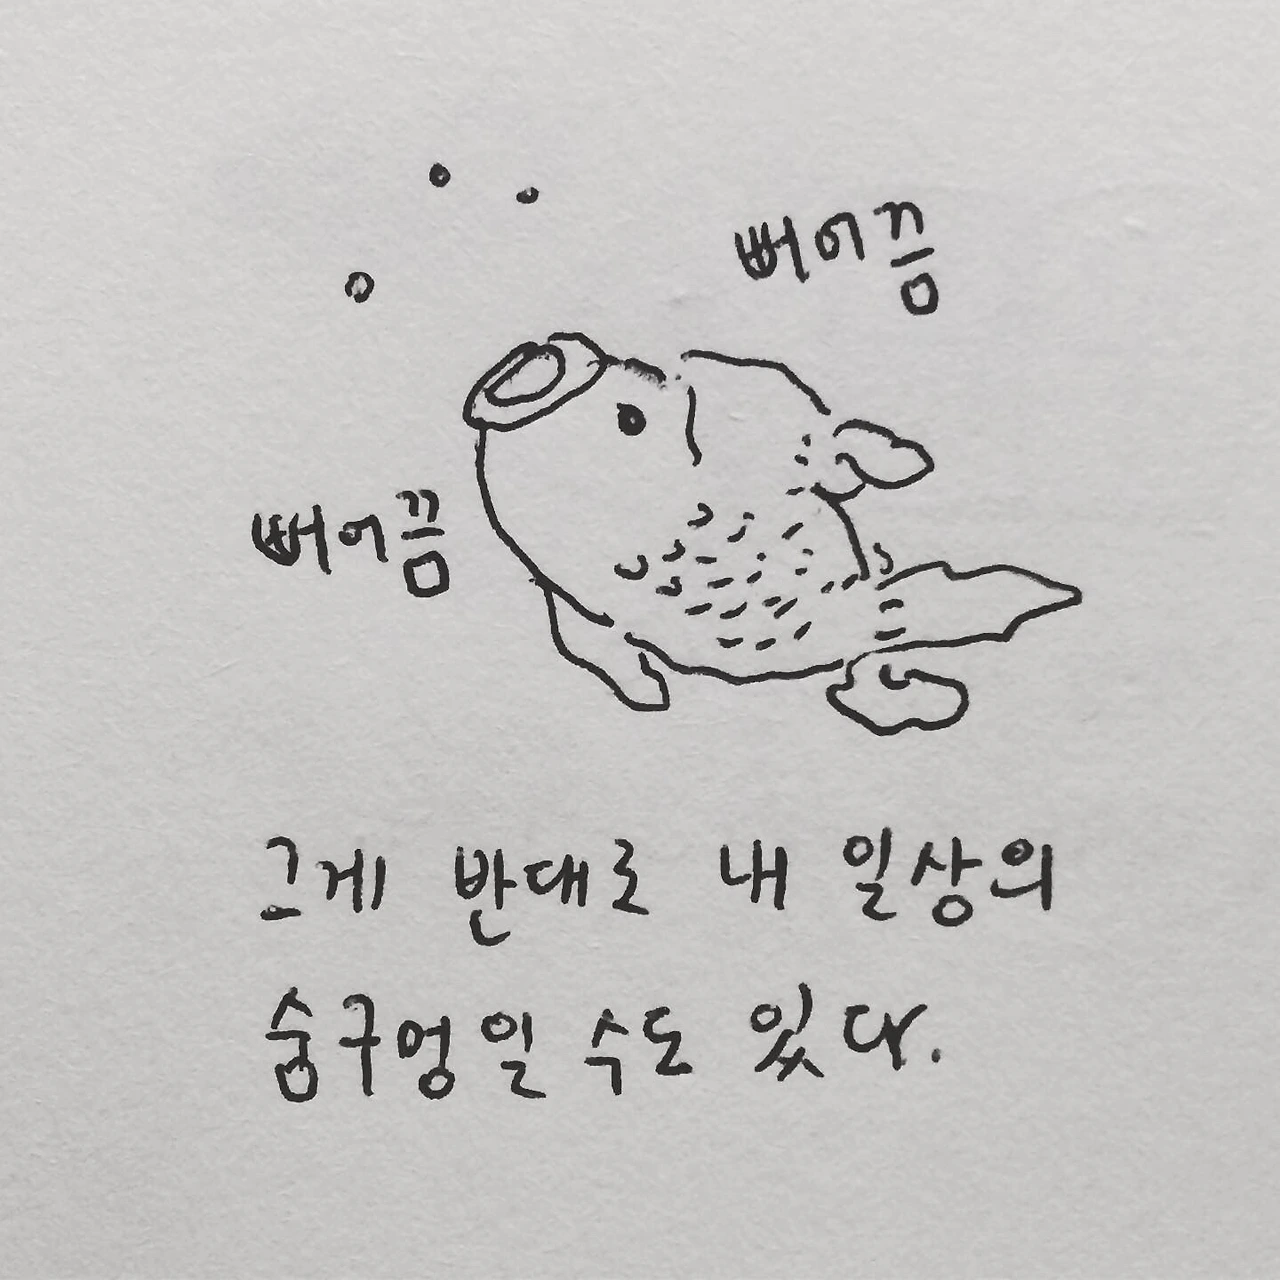 뻐어끔
뻐어끔
그게 반대로 내 일상의
숨구멍일 수도 있다.